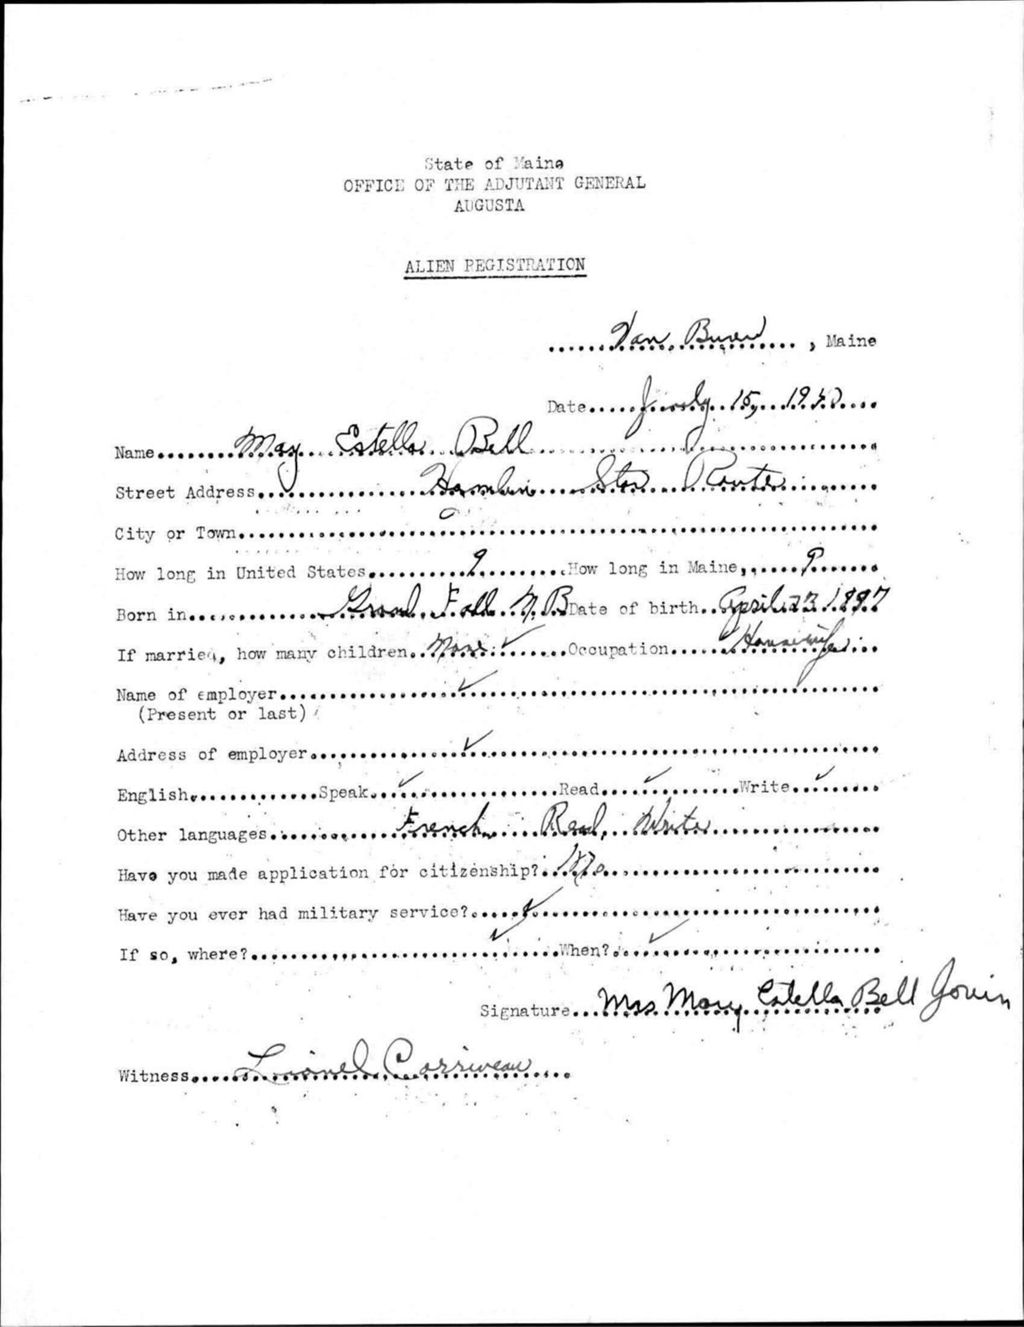 State of Maine
OFFICE OF THE ADJUTANT GENERAL
AUGUSTA
ALIEN REGISTRATION
Van Buren, Maine
Date July 15, 1940
Name May Estella Bell
Street Address Hamlin Star Route
City or Town
How long in United States 9 How long in Maine, 9
Born in Grand Fall N.B Date of birth April 23 1897
If married, how many children None ✓ Occupation Housewife
Name of employer ✓
(Present or last)
Address of employer ✓
English, Speak ✓ Read ✓ Write ✓
Other languages French Read, Write
Have you made application for citizenship? No
Have you ever had military service? ✓
If so, where? ✓ When? ✓
Signature Mrs Mary Estella Bell
Witness Lionel Corriveau